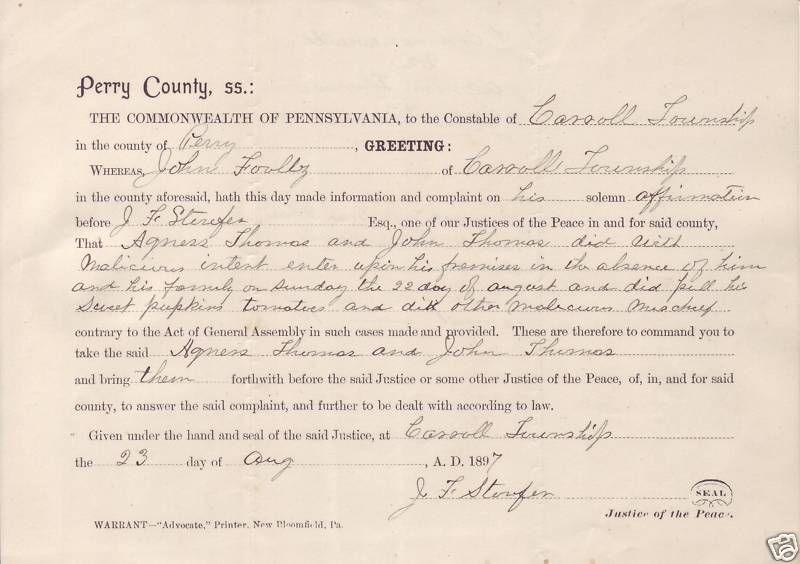 Perry County, ss.:
THE COMMONWEALTH OF PENNSYLVANIA, to the Constable of Carroll Township
in the county of Perry, GREETING:
WHEREAS, John Foultz of Carroll Township
in the county aforesaid, hath this day made information and complaint on his solemn affirmation
before J F Stoufer Esq., one of our Justices of the Peace in and for said county,
That Agness Thomas and John Thomas did with
Malicious intent enter upon his premises in the absence of him
and his family on Sunday the 22 day of august and did pull his
Sweet pupkins tomatoes and did other malicious Mischief
contrary to the Act of General Assembly in such cases made and provided. These are therefore to command you to
take the said Agness Thomas and John Thomas
and bring them forthwith before the said Justice or some other Justice of the Peace, of, in, and for said
county, to answer the said complaint, and further to be dealt with according to law.
Given under the hand and seal of the said Justice, at Carroll Township
the 23 day of Aug, A. D. 1897
J F Stoufer SEAL
Justice of the Peace.
WARRANT—"Advocate," Printer, New Bloomfield, Pa.